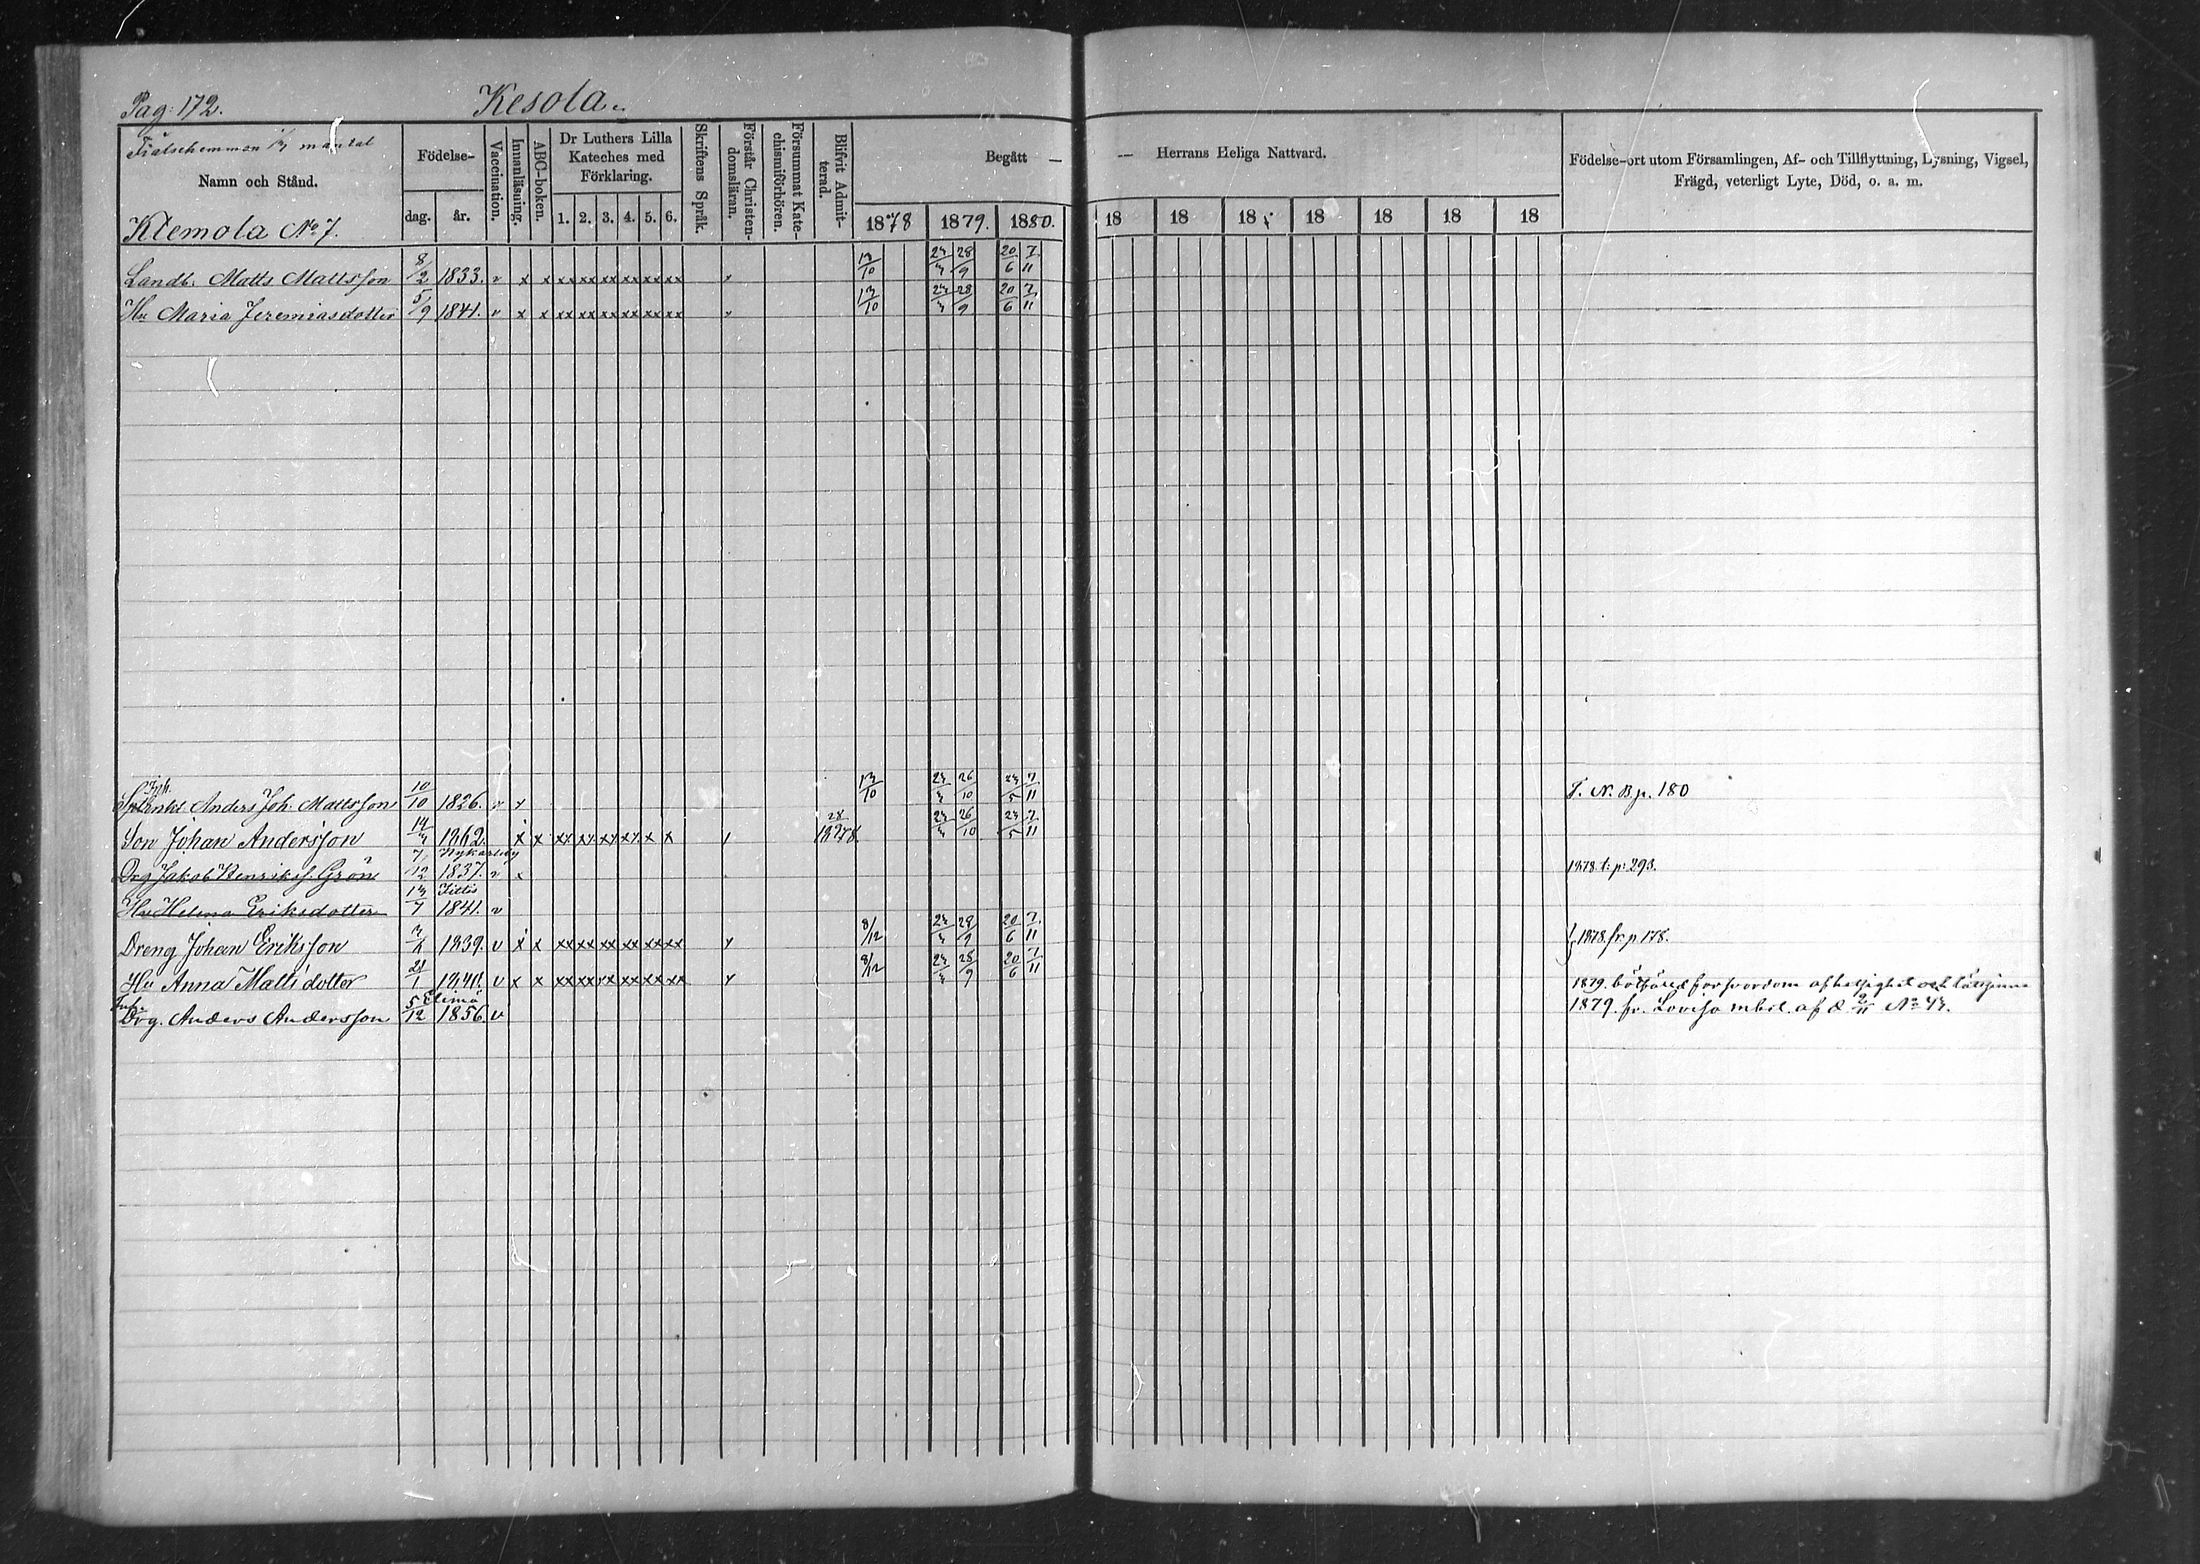 Pag: 172. Kesola
Frälsehemman mantal
Namn och Stånd.
Födelse-
dag. år.
Vaccination.
Innanläsning.
ABC-boken.
Dr Luthers Lilla
Kateches med
Förklaring.
1. 2. 3. 4. 5. 6.
Skriftens Språk.
Förstår Christen-
domsläran.
Försummat Kate-
chismiförhören.
Blifvit Admit-
terad.
Begått — — Herrans Heliga Nattvard.
1878 1879. 1880. 18 18 18 18 18 18 18
Födelse-ort utom Församlingen, Af- och Tillflyttning, Lysning, Vigsel,
Frägd, veterligt Lyte, Död, o. a. m.
Klemola No 7.
Landb. Matts Mattsson 8/2 1833. v x x xx xx xx xx xx xx 13/10 23/3 28/9 20/6 7/11
Hu Maria Jeremiasdotter 5/9 1841. v x x xx xx xx xx xx xx 13/10 23/3 28/9 20/6 7/11
Anders Joh. Mattsson 10/10 1826. v 13/10 23/3 26/10 23/5 7/11 T. N. B p. 180
Son Johan Andersson 1862. x x 28 1878 23/3 26/10 23/5 7/11
Nykarleby
Drg Jakob Henrikss. Grön 7/12 1837. v x 1878. t. p. 293.
Hu Helena Eriksdotter 13/7 1841. v
Dreng Johan Eriksson 1839. v x x xx xx xx xx xx xx 8/12 23/3 28/9 20/6 7/11 1878 fr. p 178.
Hu Anna Mattsdotter 21/1 1840. v x x xx xx xx xx xx xx 8/12 23/3 28/9 20/6 7/11 1879. bötfäld för svordom af hetsighet och lättsinne
Elimä
Drg. Anders Andersson 5/12 1856. v 1879. fr. Lovisa mbet. af d. 2/11 No 43.